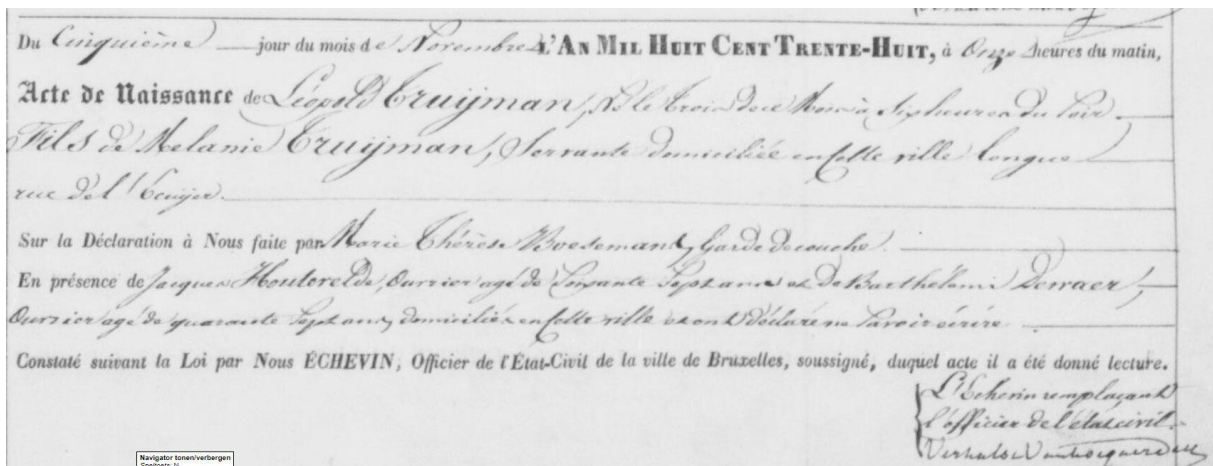 Du Cinquième jour du mois de Novembre L'AN MIL HUIT CENT TRENTE-HUIT, à Onze heures du matin,
Acte de Naissance de Léopold Truijman, Né le trois de ce Mois à Six heures du Soir.
Fils de Melanie Truijman, Servante domiciliée en Cette ville longue
rue de l'Ecuyer.
Sur la Déclaration à Nous faite par Marie Thérèse Boesemans, Garde de couche.
En présence de Jacques Houtvelde, Ouvrier agé de Soixante Sept ans et de Barthélemi Devraer,
Ouvrier agé de quarante Sept ans, domiciliés en Cette ville et ont déclaré ne Savoir écrire
Constaté suivant la Loi par Nous ÉCHEVIN, Officier de l'État-Civil de la ville de Bruxelles, soussigné, duquel acte il a été donné lecture.
L'Echevin remplaçant
l'officier de l'état civil
Verhulst
Navigator tonen/verbergen